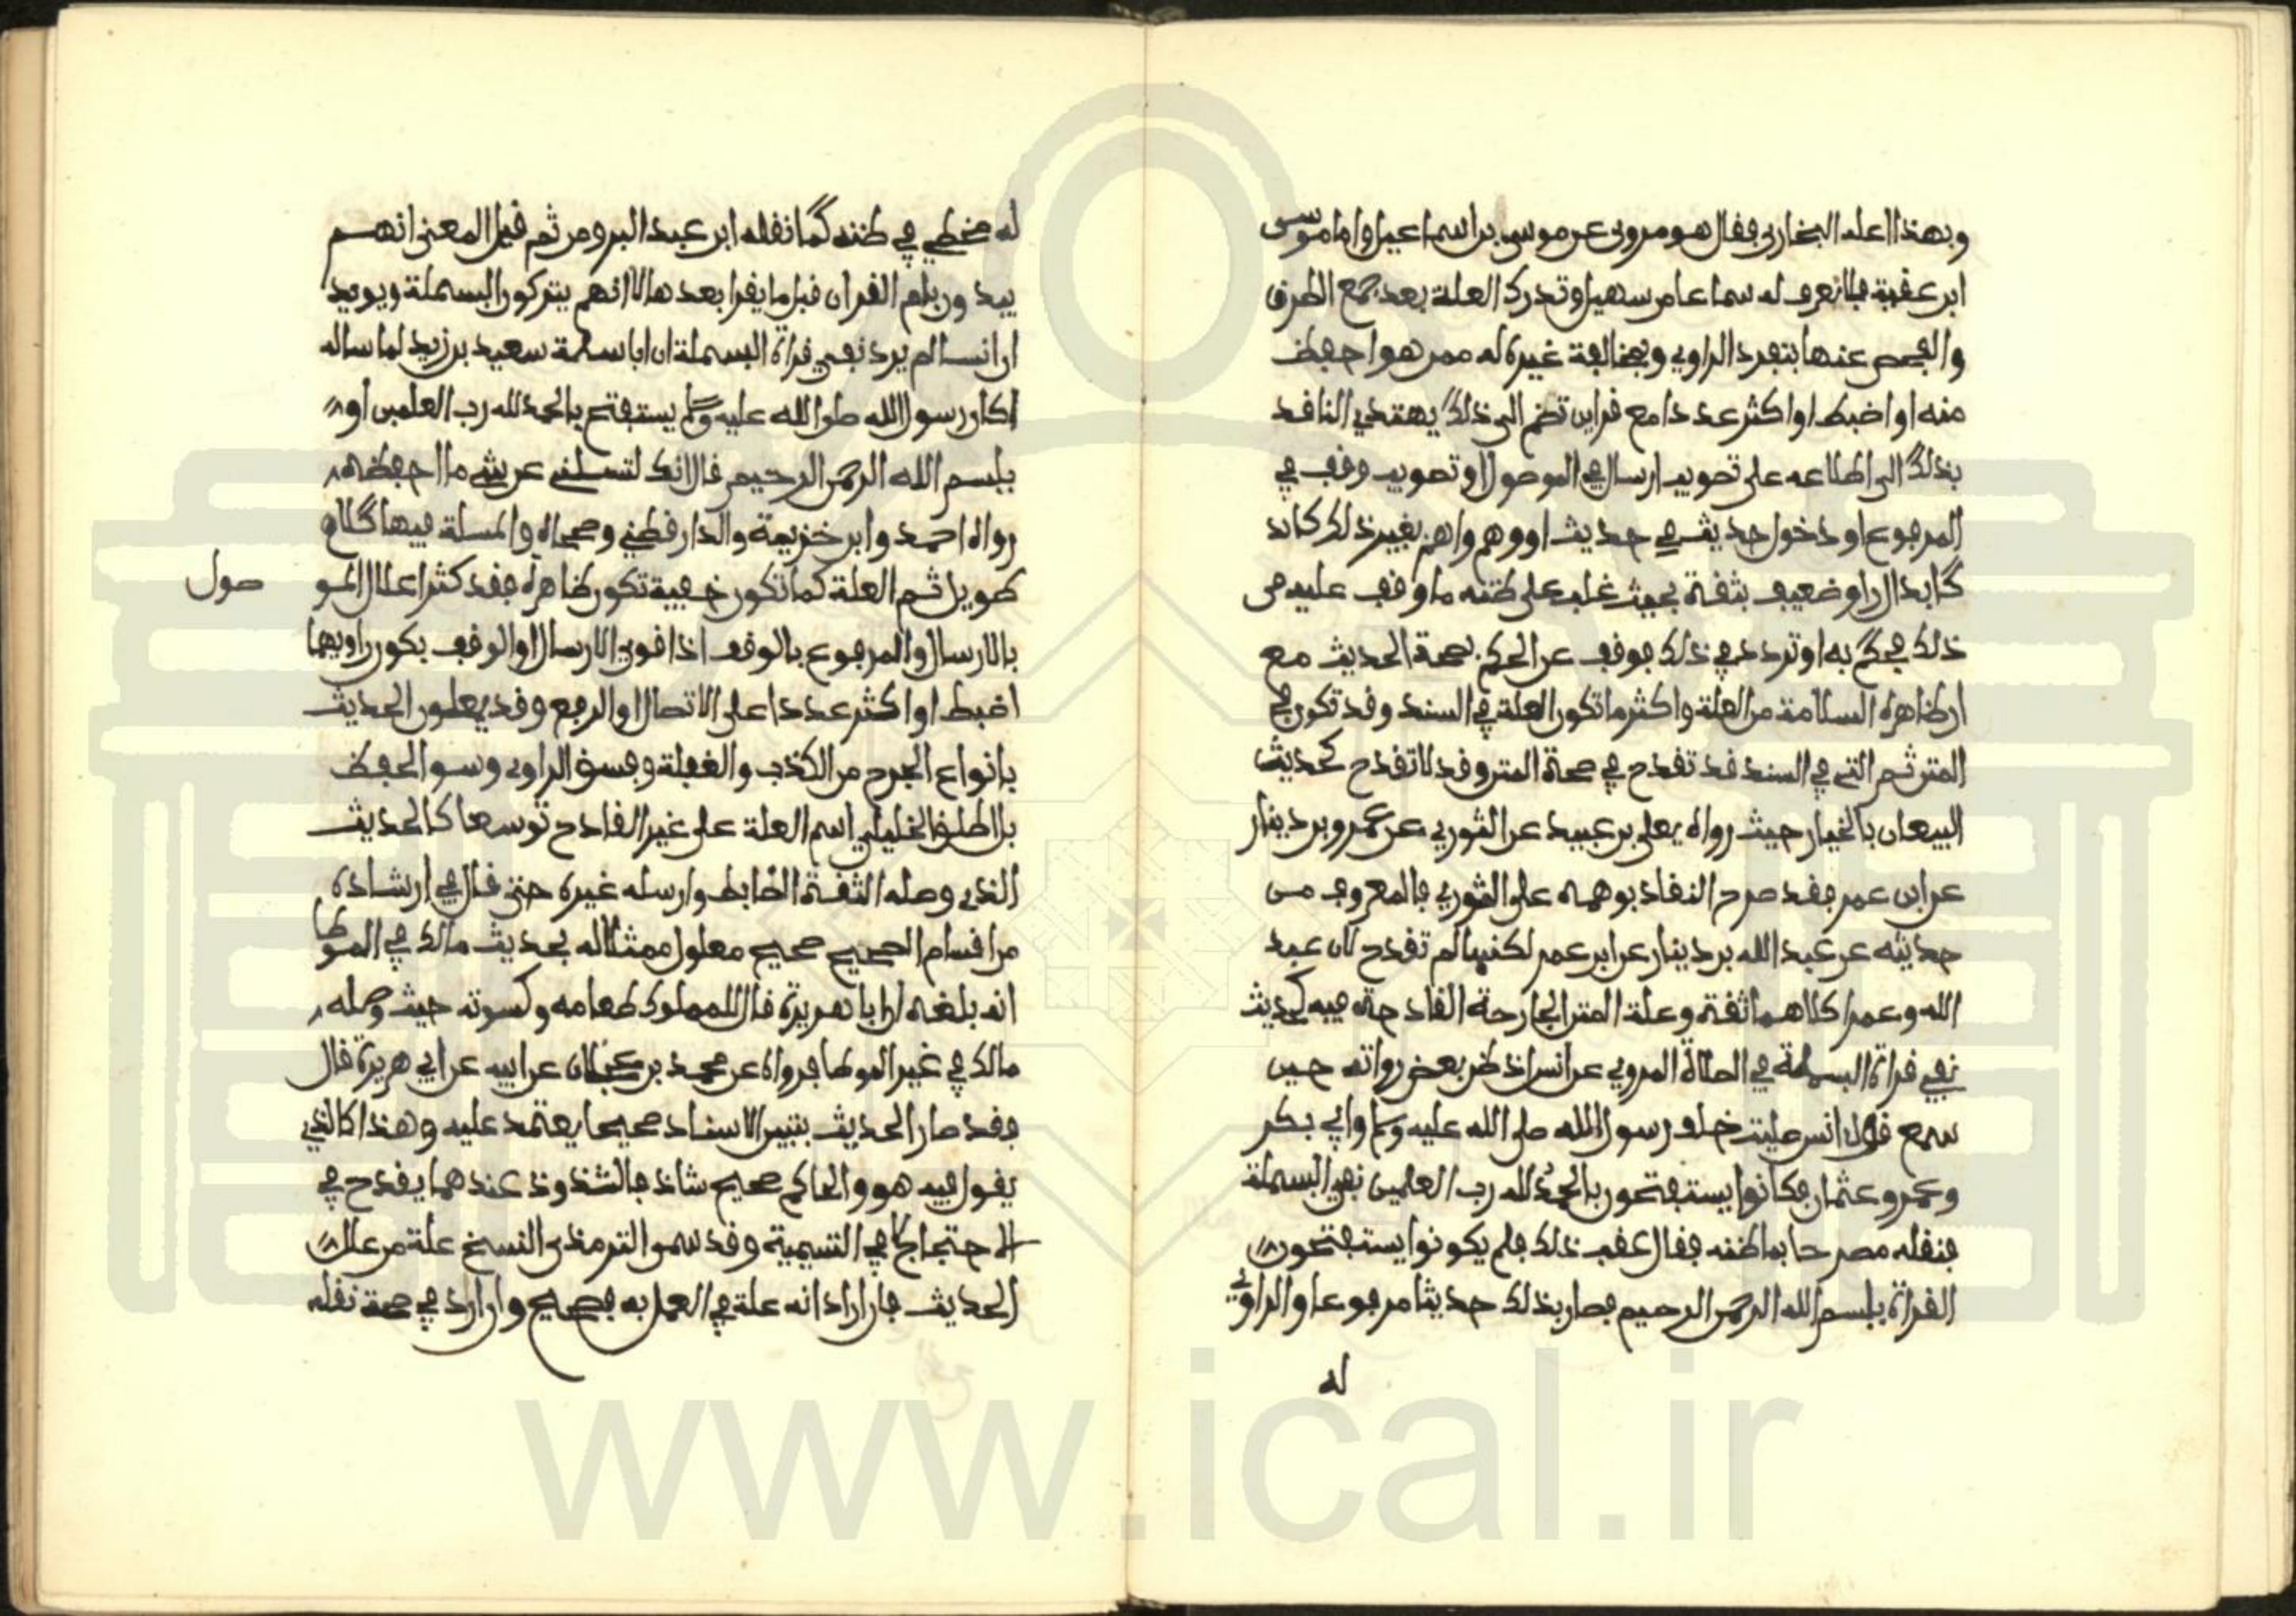 وبهذا اعله البخاري فقال هو مروي عن موسى بن اسماعيل واما موسى
ابن عقبة فلا نعرف له سماعا من سهيل وتدرك العلة بعد جمع الطرق
والفحص عنها بتفرد الراوي وبمخالفة غيره له ممن هو احفظ
منه او اضبط او اكثر عددا مع قراين تضم الى ذلك يهتدي الناقد
بذلك الى اطلاعه على تصويب ارسال في الموصول او تصويب وقف في
المرفوع او دخول حديث في حديث او وهم واهم بغير ذلك كابد
كابدال راو ضعيف بثقة بحيث غلب على ظنه ما وقف عليه من
ذلك فحكم به او تردد في ذلك فوقف عن الحكم بصحة الحديث مع
ان ظاهره السلامة من العلة واكثر ما تكون العلة في السند وقد تكون في
المتن ثم التي في السند قد تقدح في صحة المتن وقد لا تقدح كحديث
البيعان بالخيار حيث رواه يعلى بن عبيد عن الثوري عن عمرو بن دينار
عن ابن عمر فقد صرح النقاد بوهمه على الثوري فالمعروف من
حديثه عن عبد الله بن دينار عن ابن عمر لكنها لم تقدح لان عبد
الله وعمرا كلاهما ثقة وعلة المتن الجارحة القادحة فيه كحديث
نفي قراة البسملة في الصلاة المروي عن انس اذ ظن بعض رواته حين
سمع قول انس صليت خلف رسول الله صلى الله عليه وسلم وابي بكر
وعمر وعثمان فكانوا يستفتحون بالحمد لله رب العلمين نفي البسملة
فنقله مصرحا بما ظنه فقال عقب ذلك فلم يكونوا يستفتحون
القراة ببسم الله الرحمن الرحيم فصار بذلك حديثا مرفوعا والراوي
له
له مخطي في ظنه كما نقله ابن عبد البر ومن ثم قيل المعنى انهم
يبدءون بام القران قبل ما يقرا بعدها لا انهم يتركون البسملة ويويد
ان انسا لم يرد نفي قراة البسملة ان ابا سلمة سعيد بن زيد لما ساله
اكان رسول الله صلى الله عليه وسلم يستفتح بالحمد لله رب العلمين او
ببسم الله الرحمن الرحيم قال انك لتسلني عن شي ما احفظه
رواه احمد وابن خزيمة والدارقطني وصححاه والمسلة فيها كلام
طويل ثم العلة كما تكون خفية تكون ظاهرة فقد كثر اعلال المو صول
بالارسال والمرفوع بالوقف اذا قوي الارسال او الوقف بكون راويهما
اضبط او اكثر عددا على الاتصال او الرفع وقد يعلون الحديث
بانواع الجرح من الكذب والغفلة وفسق الراوي وسو الحفظ
بل اطلق الخليلي اسم العلة على غير القادح توسعا كالحديث
الذي وصله الثقة الضابط وارسله غيره حتى قال في ارشاده
من اقسام الصحيح صحيح معلول ممثلا له بحديث مالك في الموطا
انه بلغه ان ابا هريرة قال للمملوك طعامه وكسوته حيث وصله
مالك في غير الموطا فرواه عن محمد بن عجلان عن ابيه عن ابي هريرة قال
فقد صار الحديث بتبيين الاسناد صحيحا يعتمد عليه وهذا كالذي
يقول فيه هو والحاكم صحيح شاذ فالشذوذ عندهما يقدح في
الاحتجاج لا في التسمية وقد سمى الترمذي النسخ علة من علل
الحديث فان اراد انه علة في العمل به فصحيح وان اراد في صحة نقله
www.ical.ir